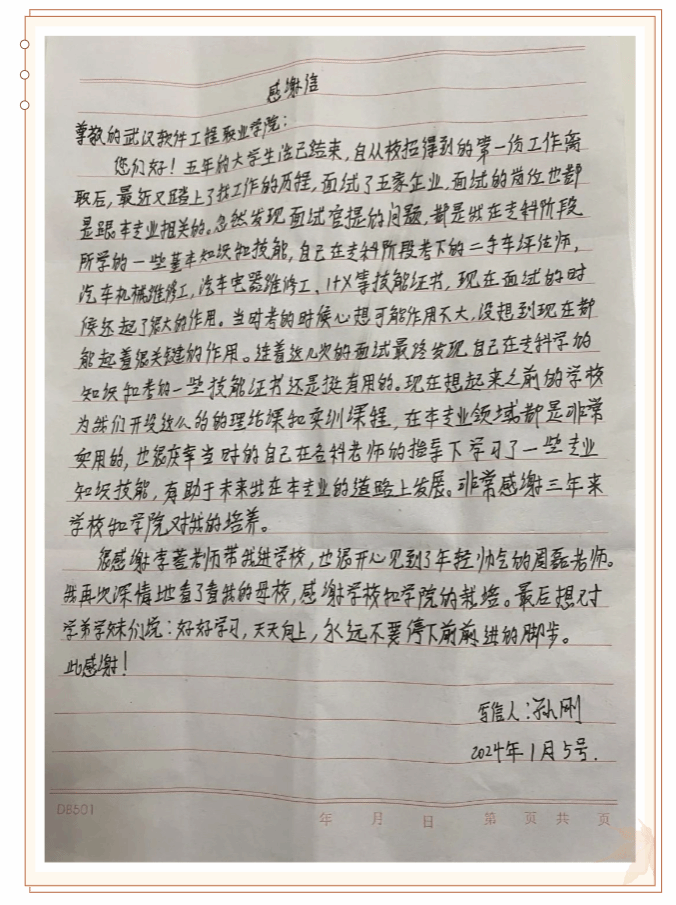 感谢信
尊敬的武汉软件工程职业学院：
您们好！五年的大学生活已结束，自从校招得到的第一份工作离
职后，最近又踏上了找工作的历程，面试了五家企业，面试的岗位也都
是跟本专业相关的。忽然发现面试官提的问题，都是我在专科阶段
所学的一些基本知识和技能，自己在专科阶段考下的二手车评估师，
汽车机械维修工，汽车电器维修工、1+X等技能证书，现在面试的时
候还起了很大的作用。当时考的时候心想可能作用不大，没想到现在都
能起着很关键的作用。连着这几次的面试最终发现自己在专科学的
知识和考的一些技能证书还是挺有用的。现在想起来之前的学校
为我们开设这么的的理论课和实训课程，在本专业领域都是非常
实用的，也很庆幸当时的自己在各科老师的指导下学习了一些专业
知识技能，有助于未来我在本专业的道路上发展。非常感谢三年来
学校和学院对我的培养。
很感谢李老师带我进学校，也很开心见到了年轻帅气的周磊老师。
我再次深情地看了看我的母校，感谢学校和学院的栽培。最后想对
学弟学妹们说：好好学习，天天向上，永远不要停下前前进的脚步。
此感谢！
写信人：孙刚
2024年1月5号.
DB501
年 月 日 第 页 共 页